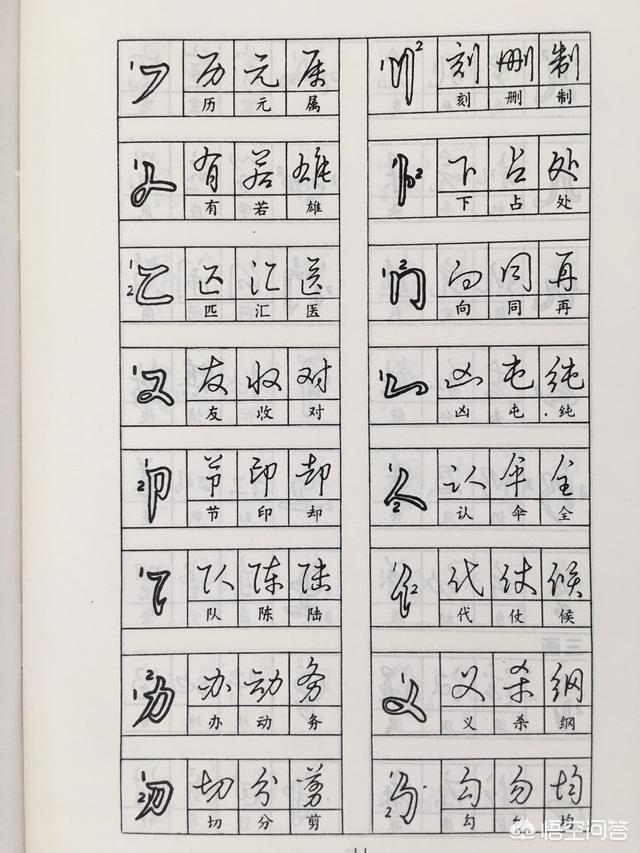 历 元 属
历 元 属
有 若 雄
有 若 雄
匹 汇 医
匹 汇 医
友 收 对
友 收 对
节 印 却
节 印 却
队 陈 陆
队 陈 陆
办 动 务
办 动 务
切 分 剪
切 分 剪
刻 删 制
刻 删 制
下 占 处
下 占 处
向 同 再
向 同 再
凶 屯 纯
凶 屯 纯
认 伞 全
认 伞 全
代 仗 候
代 仗 候
义 杀 纲
义 杀 纲
勾 勿 均
勾 勿 均
悟空问答